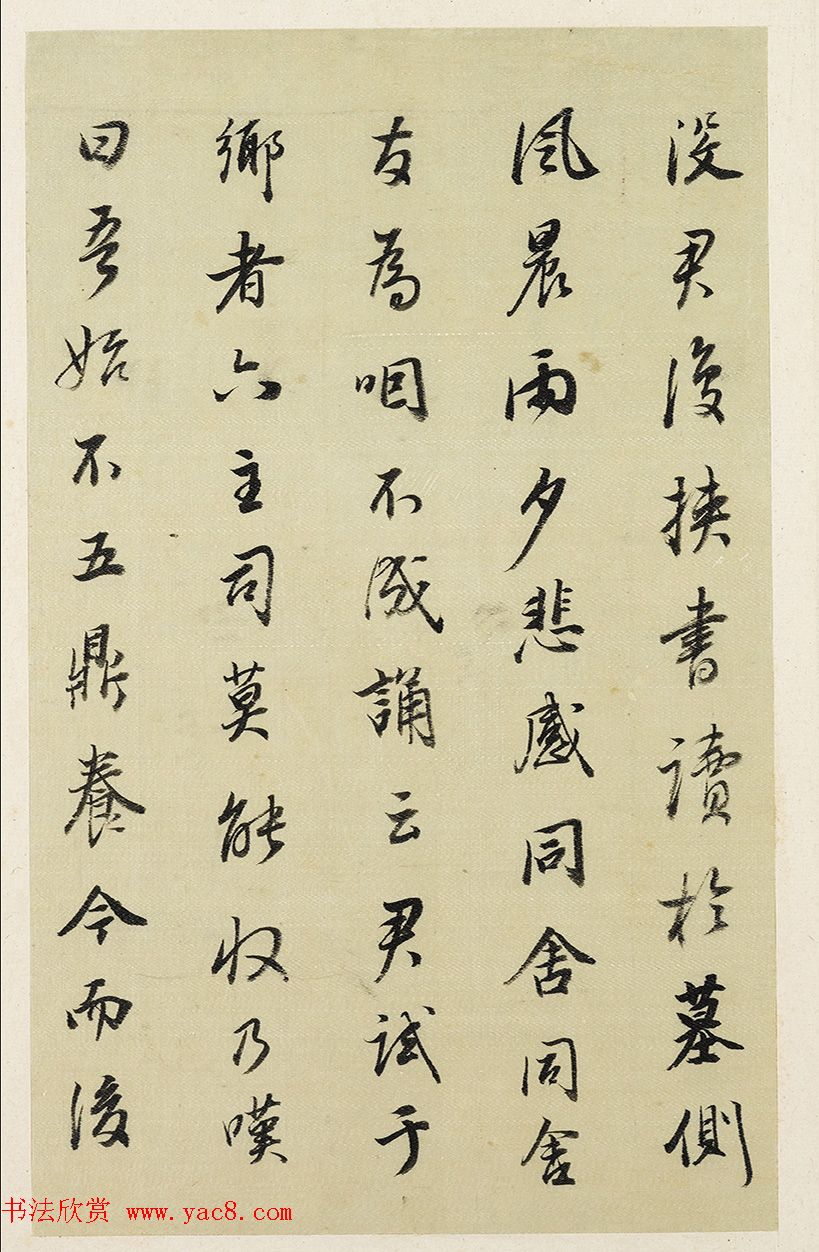 没君後挾書讀於墓側
風晨雨夕悲感同舍同舍
友為咽不成誦云君試于
鄉者六主司莫能收乃嘆
曰吾始不五鼎養今而後
书法欣赏 www.yac8.com